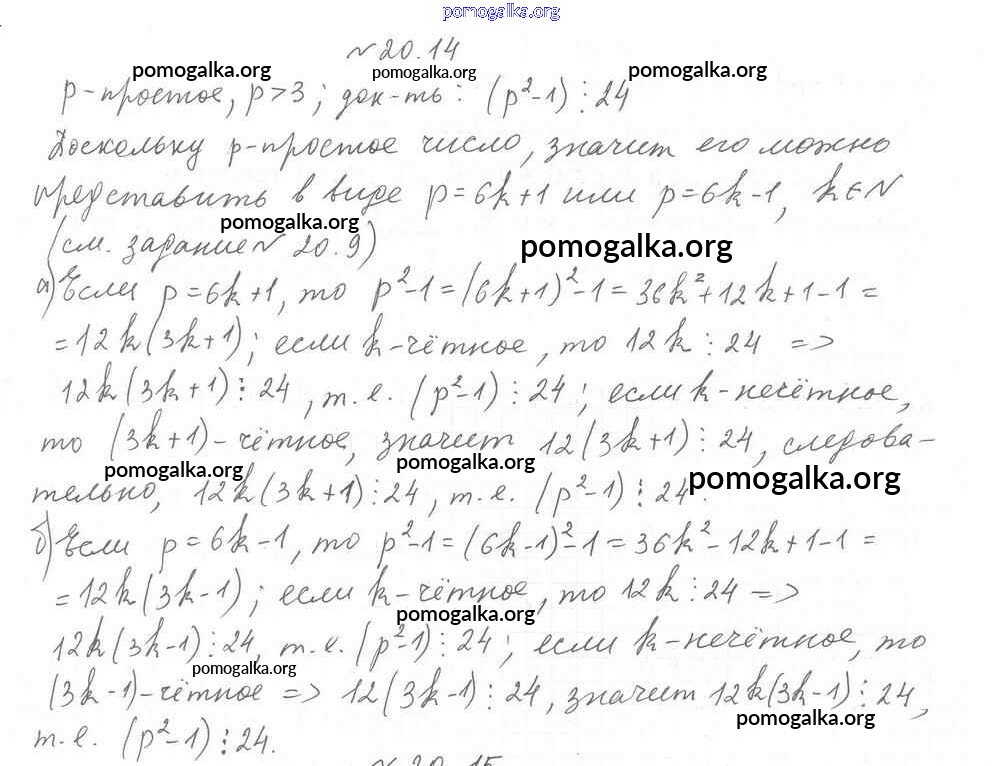 pomogalka.org
№ 20.14
pomogalka.org pomogalka.org pomogalka.org
p-простое, p>3; док-ть: (p²-1)⋮24
Поскольку p-простое число, значит его можно
представить в виде p=6k+1 или p=6k-1, k∈N
pomogalka.org
(см. задание № 20.9) pomogalka.org
а) Если p=6k+1, то p²-1=(6k+1)²-1=36k²+12k+1-1=
=12k(3k+1); если k-чётное, то 12k⋮24 =>
12k(3k+1)⋮24, т.е. (p²-1)⋮24; если k-нечётное,
то (3k+1)-чётное, значит 12(3k+1)⋮24, следова-
pomogalka.org pomogalka.org pomogalka.org
тельно, 12k(3k+1)⋮24, т.е. (p²-1)⋮24.
б) Если p=6k-1, то p²-1=(6k-1)²-1=36k²-12k+1-1=
=12k(3k-1); если k-чётное, то 12k⋮24 =>
pomogalka.org
12k(3k-1)⋮24, т.е. (p²-1)⋮24; если k-нечётное, то
pomogalka.org
(3k-1)-чётное => 12(3k-1)⋮24, значит 12k(3k-1)⋮24,
pomogalka.org
т.е. (p²-1)⋮24.
№ 20.15